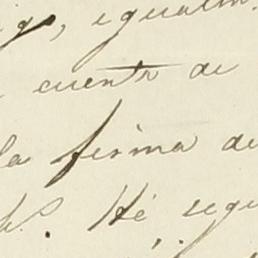 igo, igualm
cuenta de
la firma de
Hé segu